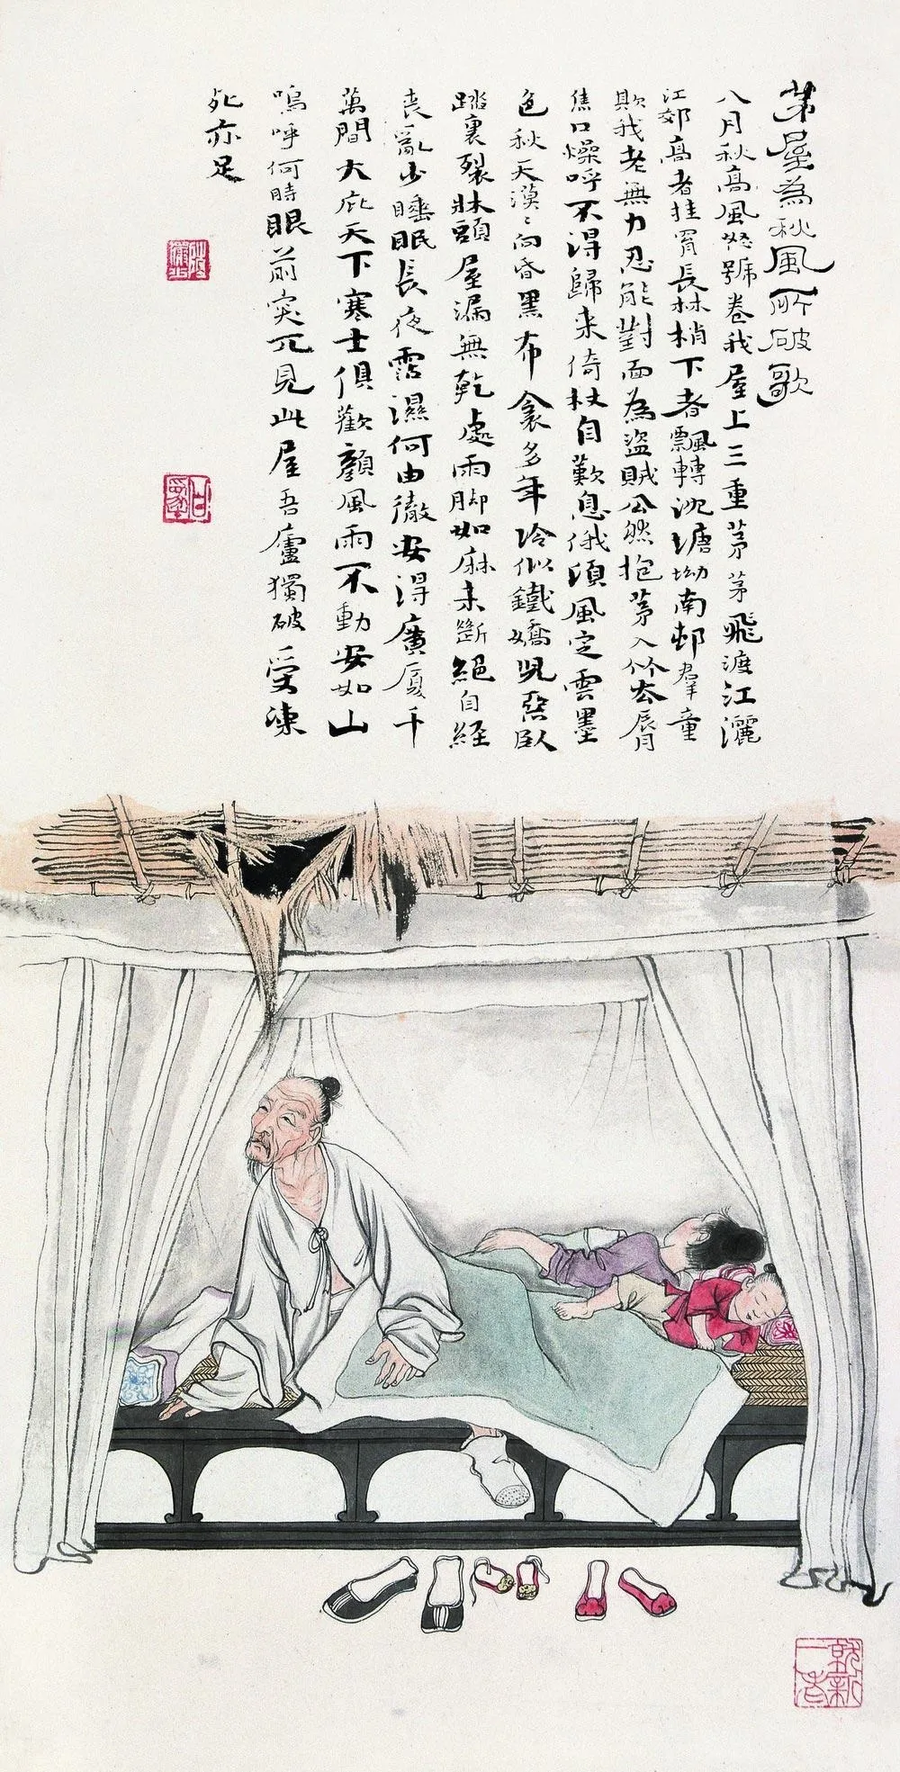 茅屋為秋風所破歌
八月秋高風怒號卷我屋上三重茅茅飛渡江灑
江郊高者挂罥長林梢下者飄轉沈塘坳南邨羣童
欺我老無力忍能對面為盜賊公然抱茅入竹去脣
焦口燥呼不得歸来倚杖自歎息俄頃風定雲墨
色秋天漠〻向昏黑布衾多年冷似鐵嬌兒惡臥
踏裏裂牀頭屋漏無乾處雨脚如麻未斷絕自経
喪亂少睡眠長夜霑濕何由徹安得廣厦千
萬間大庇天下寒士俱歡顏風雨不動安如山
嗚呼何時眼前突兀見此屋吾廬獨破受凍
死亦足